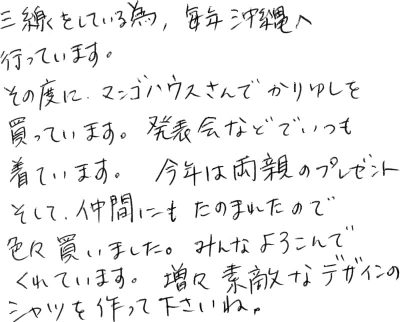 三線をしている為，毎年沖縄へ
行っています。
その度に、マンゴハウスさんでかりゆしを
買っています。発表会などでいつも
着ています。 今年は両親のプレゼント
そして、仲間にもたのまれたので
色々買いました。みんなよろこんで
くれています。増々素敵なデザインの
シャツを作って下さいね。